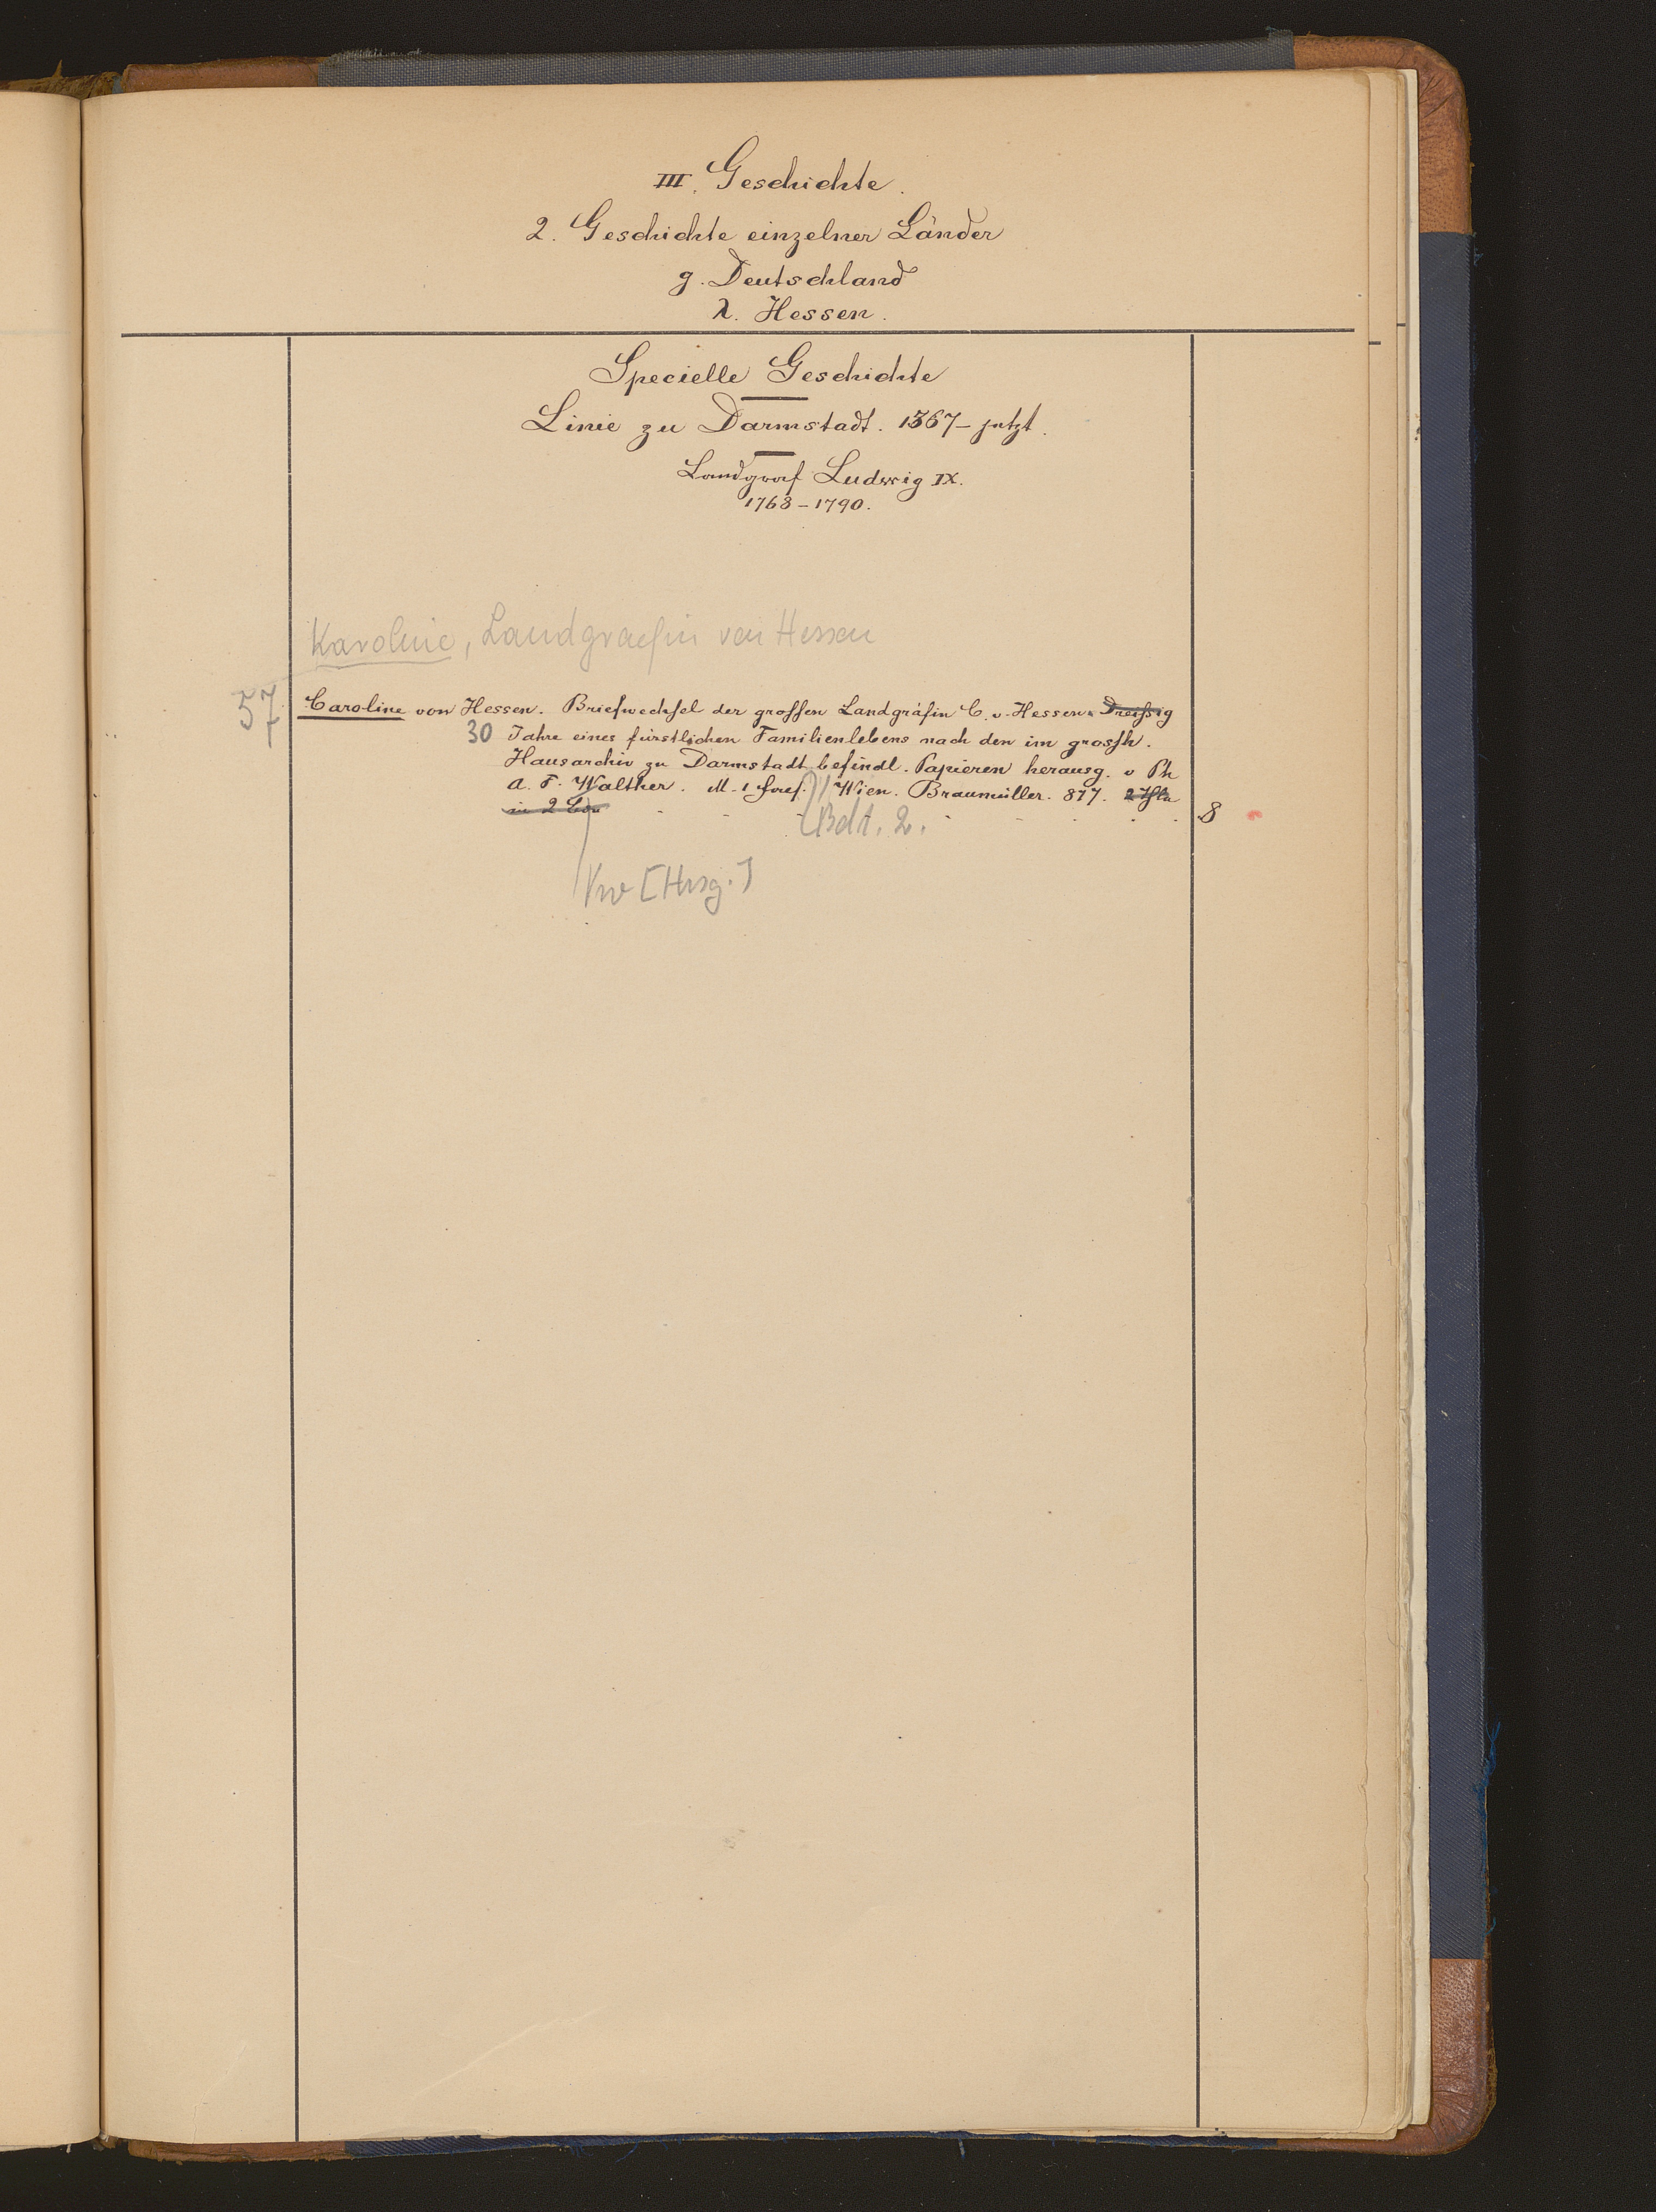 III. Geschichte.
2. Geschichte einzelner Länder
g. Deutschland
λ. Hessen.
Specielle Geschichte
Linie zu Darmstadt. 1567- jetzt.
Landgraf Ludwig IX.
1768-1790.
Karoline, Landgraefin von Hessen
57 Caroline von Hessen. Briefwechsel der grossen Landgräfin C. v. Hessen. Dreissig
30 Jahre eines fürstlichen Familienlebens nach den im grossh.
Hausarchiv zu Darmstadt befindl. Papieren herausg. v Ph
A. F. Walther. M. 1 Wien. Braumüller. 877. 2
in 2 8
Bdt. 2.
Vw [Hrsg.]